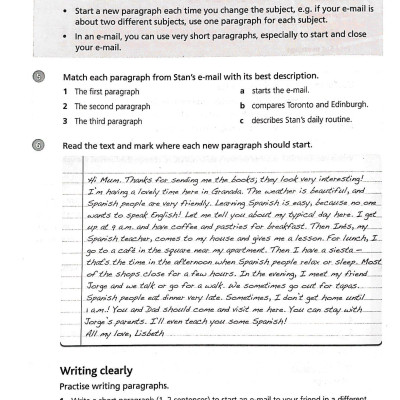 • Start a new paragraph each time you change the subject, e.g. if your e-mail is
about two different subjects, use one paragraph for each subject.
• In an e-mail, you can use very short paragraphs, especially to start and close
your e-mail.
5 Match each paragraph from Stan's e-mail with its best description.
1 The first paragraph a starts the e-mail.
2 The second paragraph b compares Toronto and Edinburgh.
3 The third paragraph c describes Stan's daily routine.
6 Read the text and mark where each new paragraph should start.
Hi Mum. Thanks for sending me the books; they look very interesting!
I'm having a lovely time here in Granada. The weather is beautiful, and
Spanish people are very friendly. Learning Spanish is easy, because no one
wants to speak English! Let me tell you about my typical day here. I get
up at 9 a.m. and have coffee and pastries for breakfast. Then Inés, my
Spanish teacher, comes to my house and gives me a lesson. For lunch, I
go to a café in the square near my apartment. Then I have a siesta –
that's the time in the afternoon when Spanish people relax or sleep. Most
of the shops close for a few hours. In the evening, I meet my friend
Jorge and we talk or go for a walk. We sometimes go out for tapas.
Spanish people eat dinner very late. Sometimes, I don't get home until
1 a.m.! You and Dad should come and visit me here. You can stay with
Jorge's parents. I'll even teach you some Spanish!
All my love, Lisbeth
Writing clearly
Practise writing paragraphs.
Write a short paragraph (1-2 sentences) to start an e-mail to your friend in a different